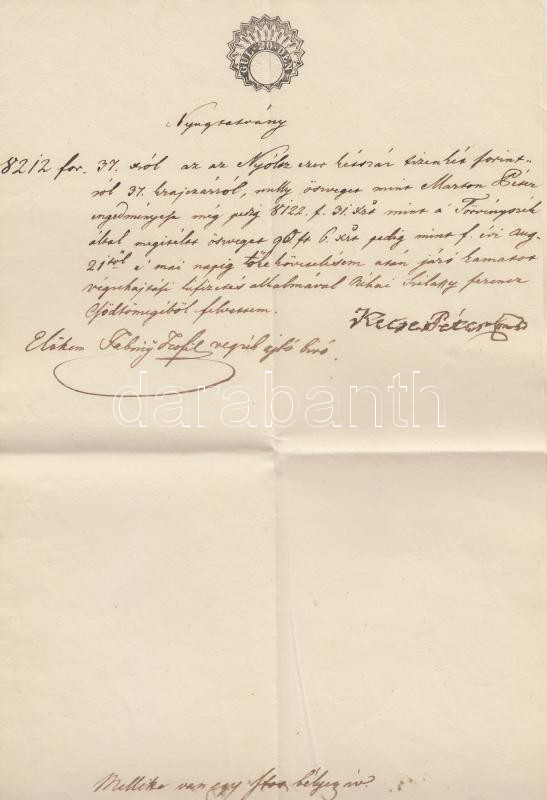 GUL·20·DEN
Nyugtatvány
8212 for. 37. xról az az Nyólsz ezer kétszáz tizenkét forint-
rol 37. krajczárról, melly ösveget mint Marton Péter
engedményese még pedig 8122. f. 31. xrt mint a Törvényszék
által megitélt ösveget 90 ft 6. xrt pedig mint f. évi aug.
21től a mai napig tőke követelésem után járó kamatot
végrehajtási lefizetés alkalmával Bihai Szilassy ferencz
Csődtömegiböl felvettem.
Kecse Péter
Előttem Fabiny Teofil végreh ajtó biró.
darabanth
Mellékve van egy ftos bélyeg iv.